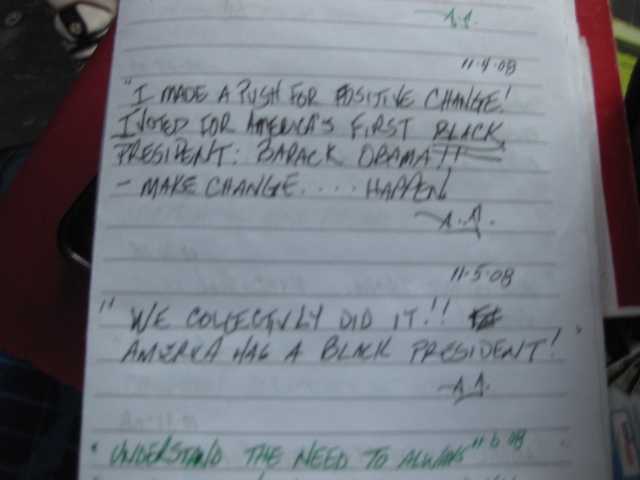 11·4·08
"I MADE A PUSH FOR POSITIVE CHANGE!
I VOTED FOR AMERICA'S FIRST BLACK
PRESIDENT: BARACK OBAMA!!
- MAKE CHANGE.... HAPPEN!
11·5·08
"WE COLLECTIVLY DID IT!!
AMERICA HAS A BLACK PRESIDENT!"
"UNDERSTAND THE NEED TO ALWAYS" 11·6·08